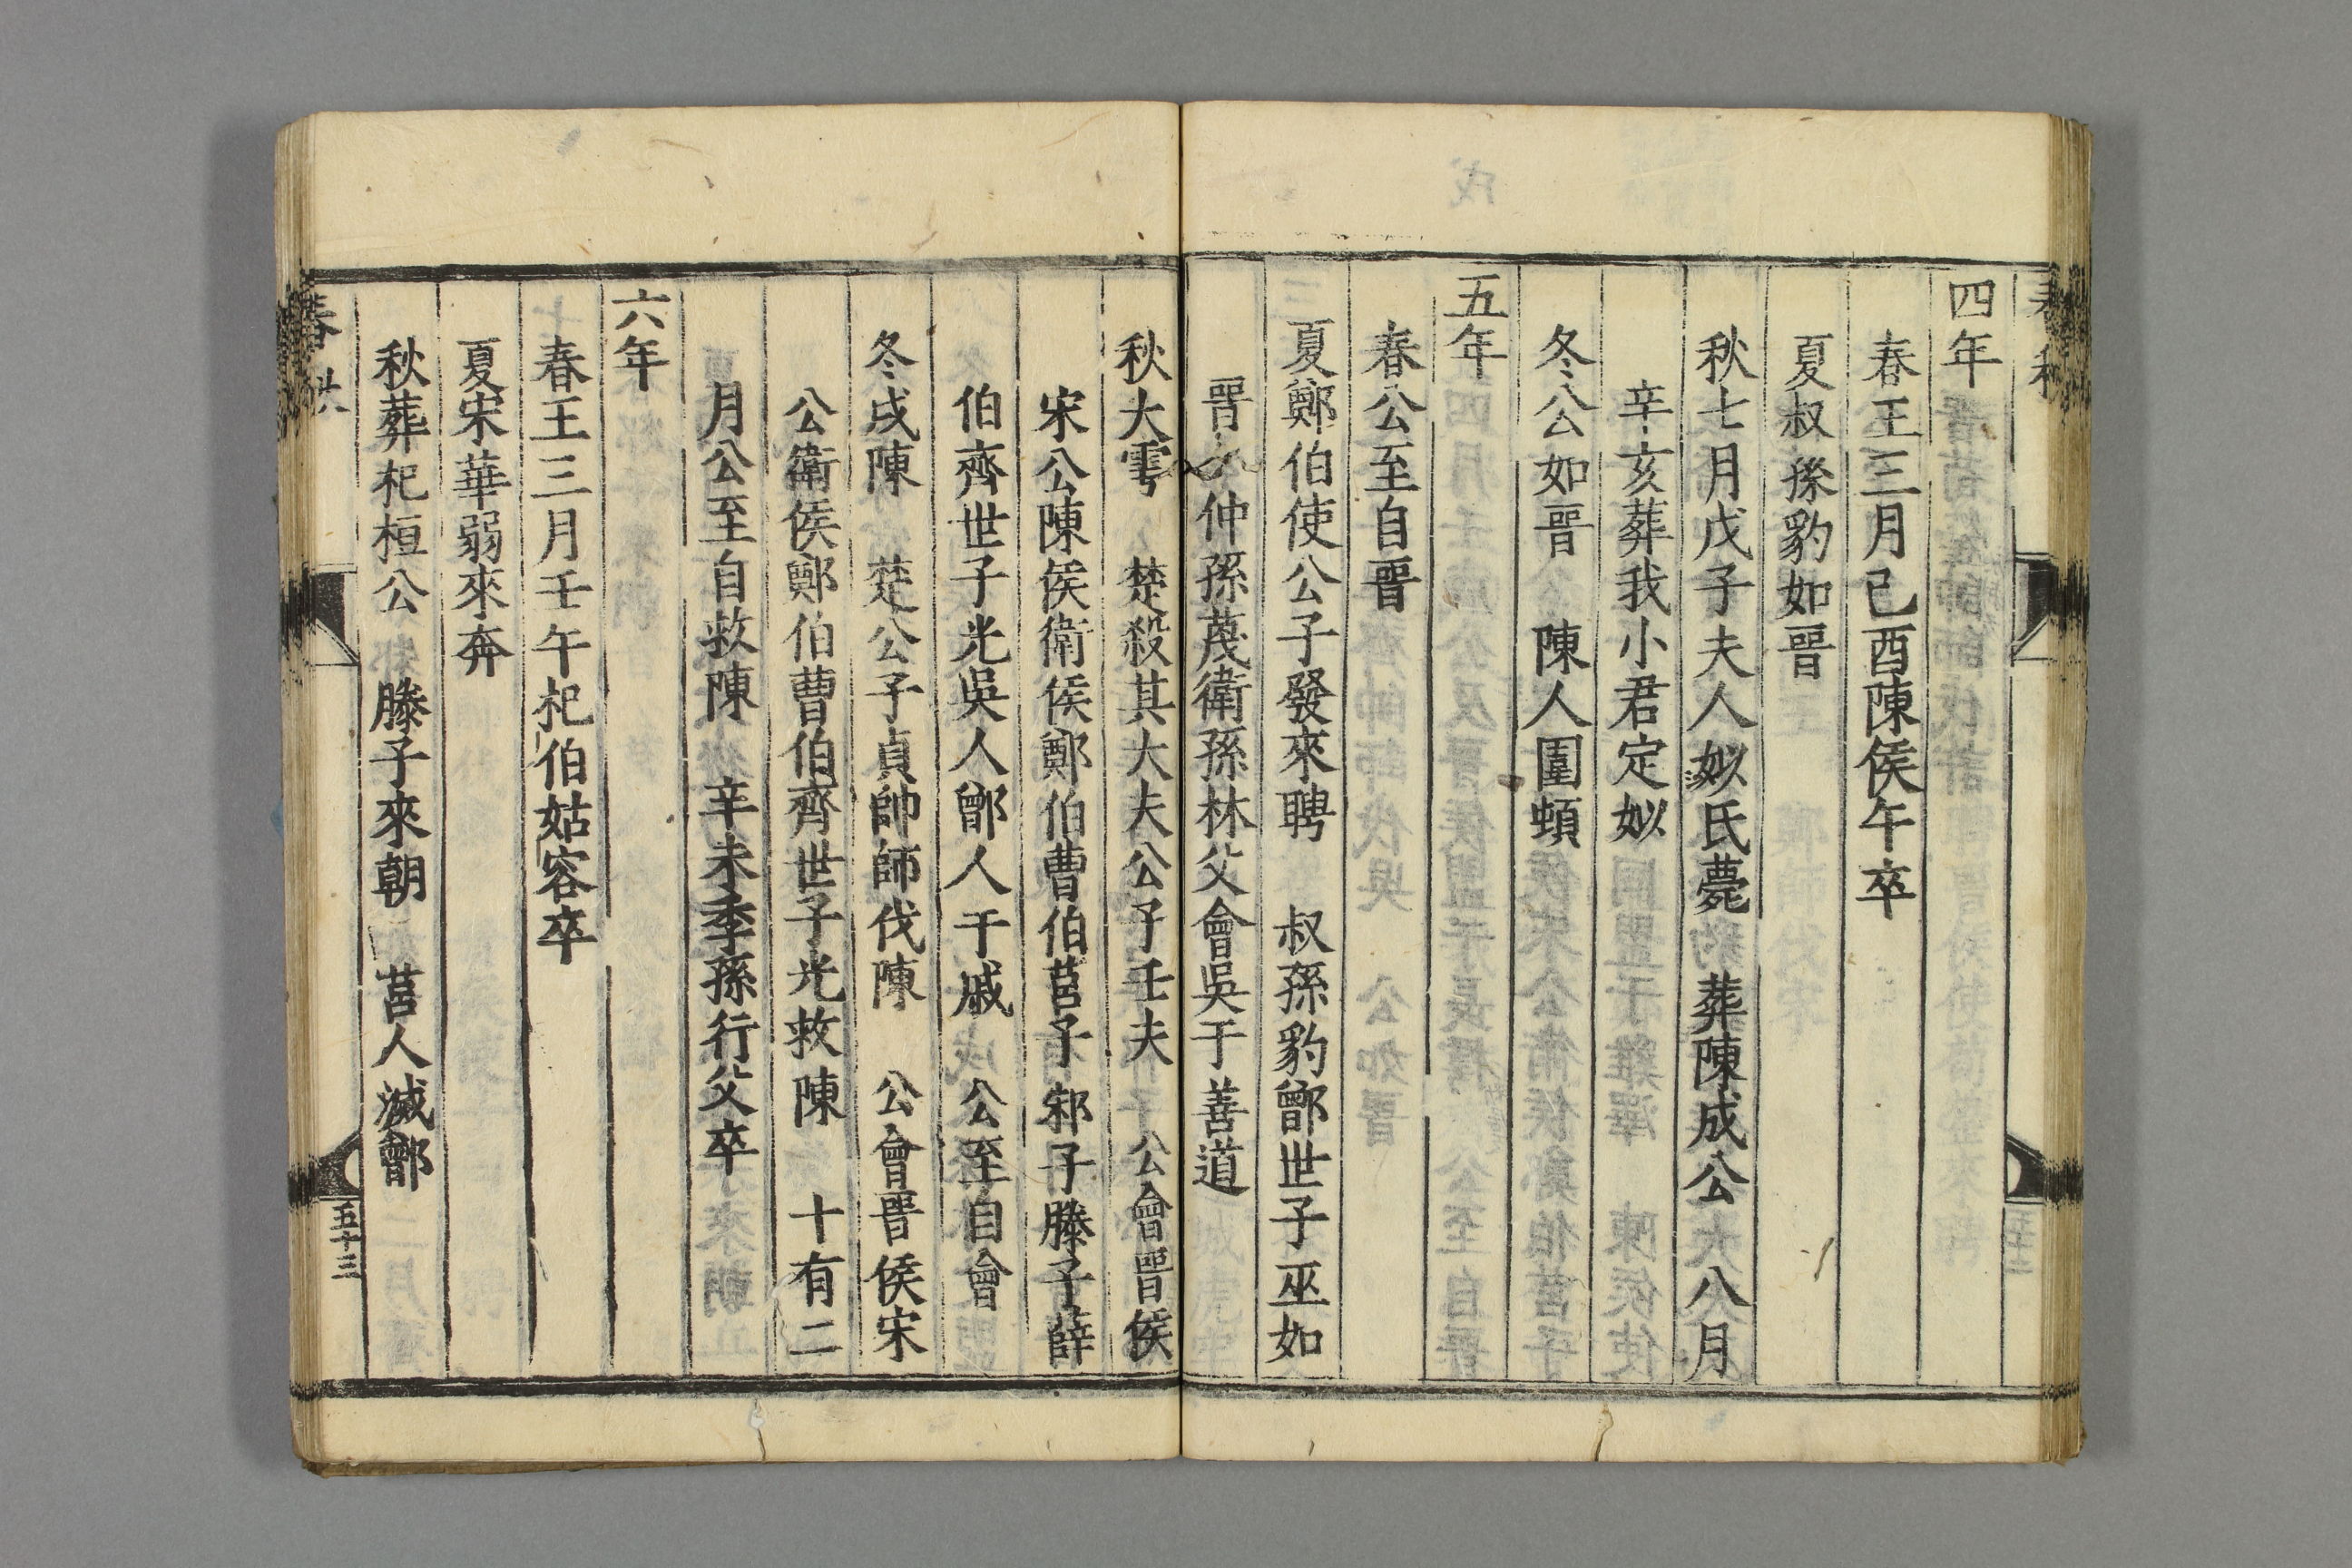 春秋
四年
春王三月己酉陳侯午卒
夏叔孫豹如晉
秋七月戊子夫人姒氏薨 葬陳成公 八月
辛亥葬我小君定姒
冬公如晉 陳人圍頓
五年
春公至自晉
夏鄭伯使公子發來聘 叔孫豹鄫世子巫如
晉 仲孫蔑衛孫林父會吳于善道
秋大雩 楚殺其大夫公子壬夫 公會晉侯
宋公陳侯衛侯鄭伯曹伯莒子邾子滕子薛
伯齊世子光吳人鄫人于戚 公至自會
冬戍陳 楚公子貞帥師伐陳 公會晉侯宋
公衛侯鄭伯曹伯齊世子光救陳 十有二
月公至自救陳 辛未季孫行父卒
六年
春王三月壬午杞伯姑容卒
夏宋華弱來奔
秋葬杞桓公 滕子來朝 莒人滅鄫
春
五十三